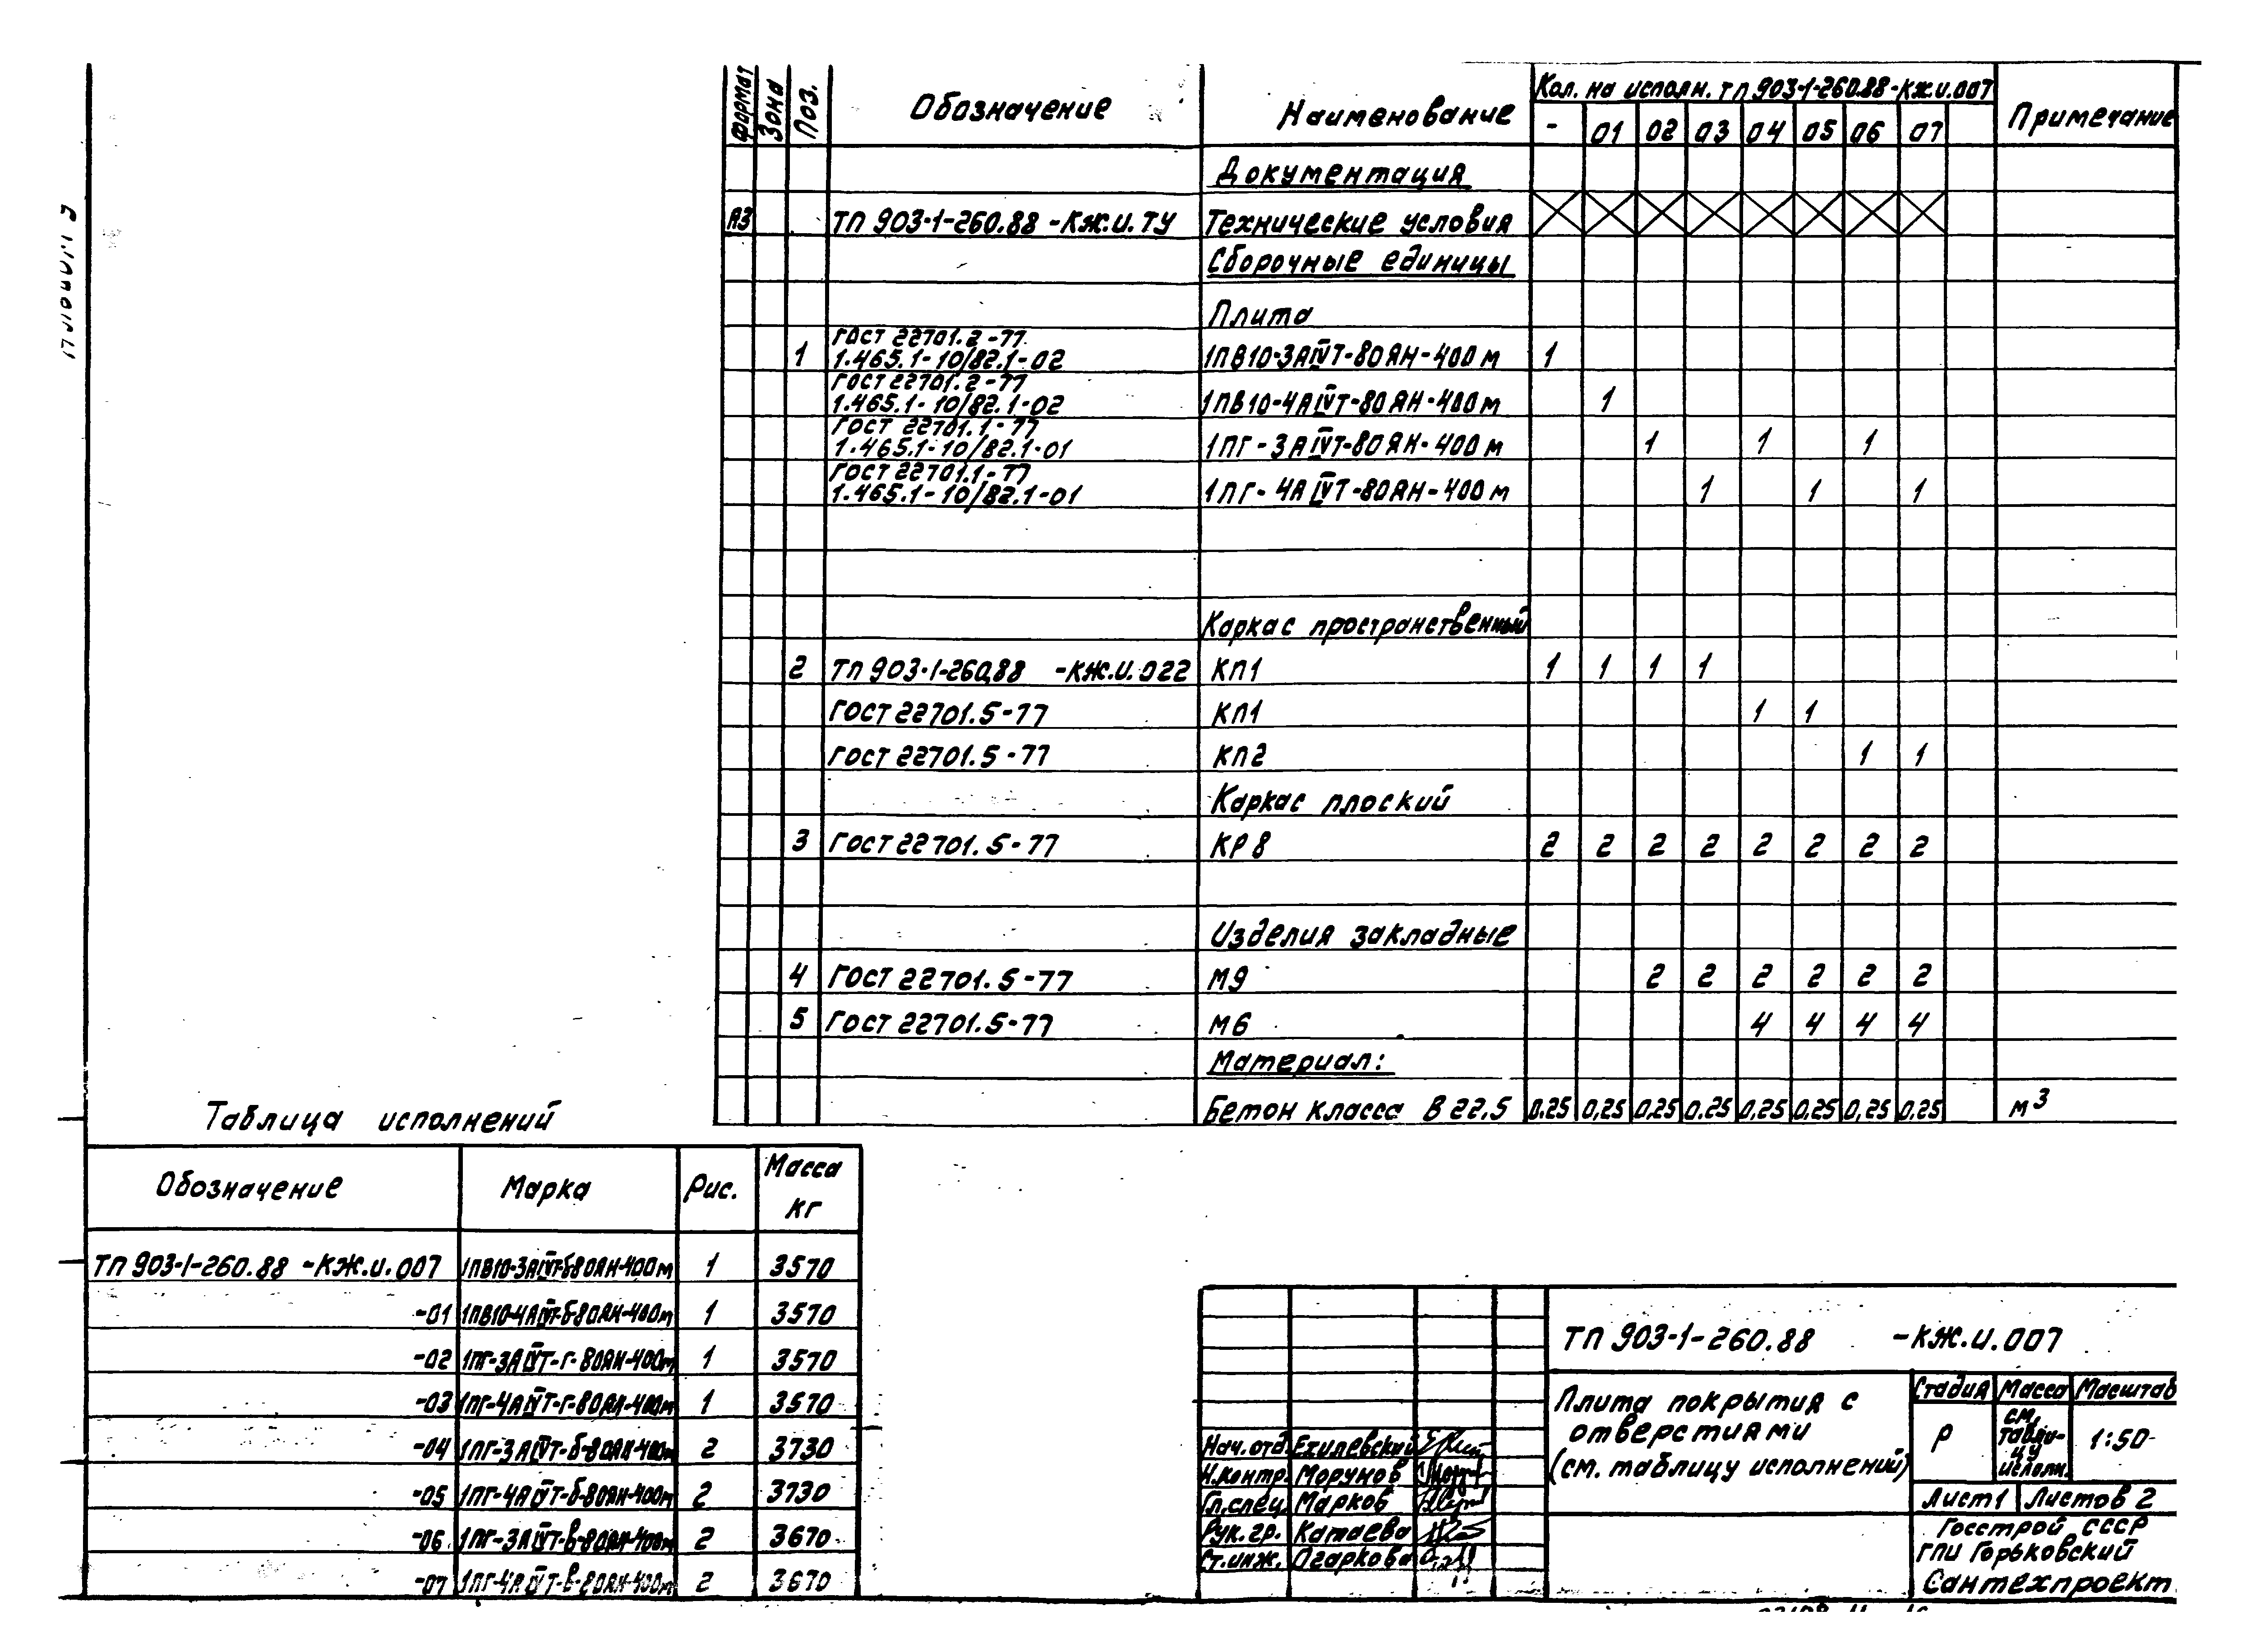 Формат Зона Поз. Обозначение Наименование Кол. на исполн. ТП 903-1-260.88-КЖ.И.007 Примечание
- 01 02 03 04 05 06 07
Документация
А3 ТП 903-1-260.88 -КЖ.И. ТУ Технические условия
Сборочные единицы
Плита
ГОСТ 22701.2-77
1 1.465.1-10/82.1-02 1ПВ10-3АIVТ-80ЯН-400м 1
ГОСТ 22701.2-77
1.465.1-10/82.1-02 1ПВ10-4АIVТ-80ЯН-400м 1
ГОСТ 22701.1-77
1.465.1-10/82.1-01 1ПГ-3АIVТ-80ЯН-400м 1 1 1
ГОСТ 22701.1-77
1.465.1-10/82.1-01 1ПГ-4АIVТ-80ЯН-400м 1 1 1
Каркас пространственный
2 ТП 903-1-260.88 -КЖ.И.022 КП1 1 1 1 1
ГОСТ 22701.5-77 КП1 1 1
ГОСТ 22701.5-77 КП2 1 1
Каркас плоский
3 ГОСТ 22701.5-77 КР8 2 2 2 2 2 2 2 2
Изделия закладные
4 ГОСТ 22701.5-77 М9 2 2 2 2 2 2
5 ГОСТ 22701.5-77 М6 4 4 4 4
Материал:
Бетон класса В 22.5 0.25 0.25 0.25 0.25 0.25 0.25 0.25 0.25 м3
Таблица исполнений
Обозначение Марка Рис. Масса кг
ТП 903-1-260.88 -КЖ.И.007 1ПВ10-3АIVТ-б-80ЯН-400м 1 3570
-01 1ПВ10-4АIVТ-б-80ЯН-400м 1 3570
-02 1ПГ-3АIVТ-г-80ЯН-400м 1 3570
-03 1ПГ-4АIVТ-г-80ЯН-400м 1 3570
-04 1ПГ-3АIVТ-б-80ЯН-400м 2 3730
-05 1ПГ-4АIVТ-б-80ЯН-400м 2 3730
-06 1ПГ-3АIVТ-в-80ЯН-400м 2 3670
-07 1ПГ-4АIVТ-в-80ЯН-400м 2 3670
ТП 903-1-260.88 -КЖ.И.007
Плита покрытия с
отверстиями
(см. таблицу исполнений)
Стадия Масса Масштаб
Р см. табли-цу исполн. 1:50
Лист 1 Листов 2
Нач. отд. Ехилевский
Н.контр. Морунов
Гл.спец. Марков
Рук. гр. Катаева
Ст.инж. Огаркова
Госстрой СССР
ГПИ Горьковский
Сантехпроект